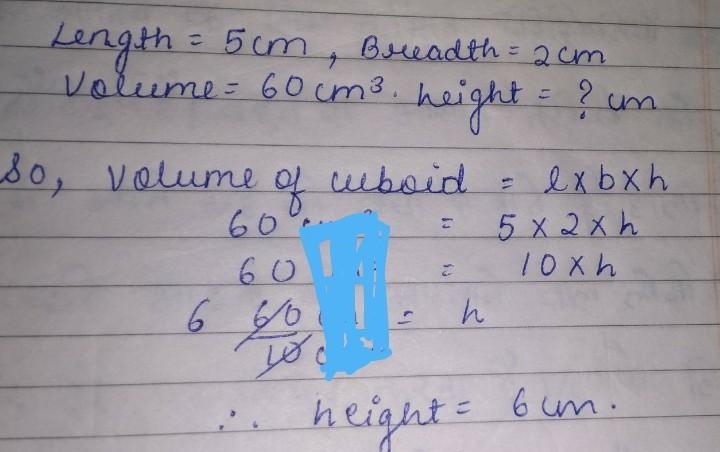 Length = 5cm, Breadth = 2cm
Volume = 60 cm³. height = ? cm
So, Volume of cuboid = l x b x h
60 = 5 x 2 x h
60 = 10 x h
6 60 = h
10
∴ height = 6 cm.